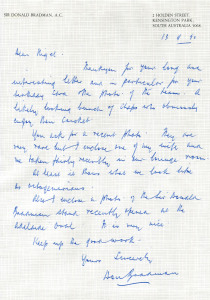 SIR DONALD BRADMAN, A.C.
2 HOLDEN STREET
KENSINGTON PARK
SOUTH AUSTRALIA 5068
Dear Nigel
Thankyou for your long and
interesting letter and in particular for your
birthday and the photo of the team. A
lively looking bunch of chaps who obviously
enjoy their cricket
You ask for a recent photo. They are
very rare but I enclose one of my wife and
me taken fairly recently in our lounge room
At least it shows what we look like
as octogenarians.
Also I enclose a photo of the Sir Donald
Bradman stand recently opened at the
Adelaide Oval. It is very nice
Keep up the good work.
Yours Sincerely
Don Bradman